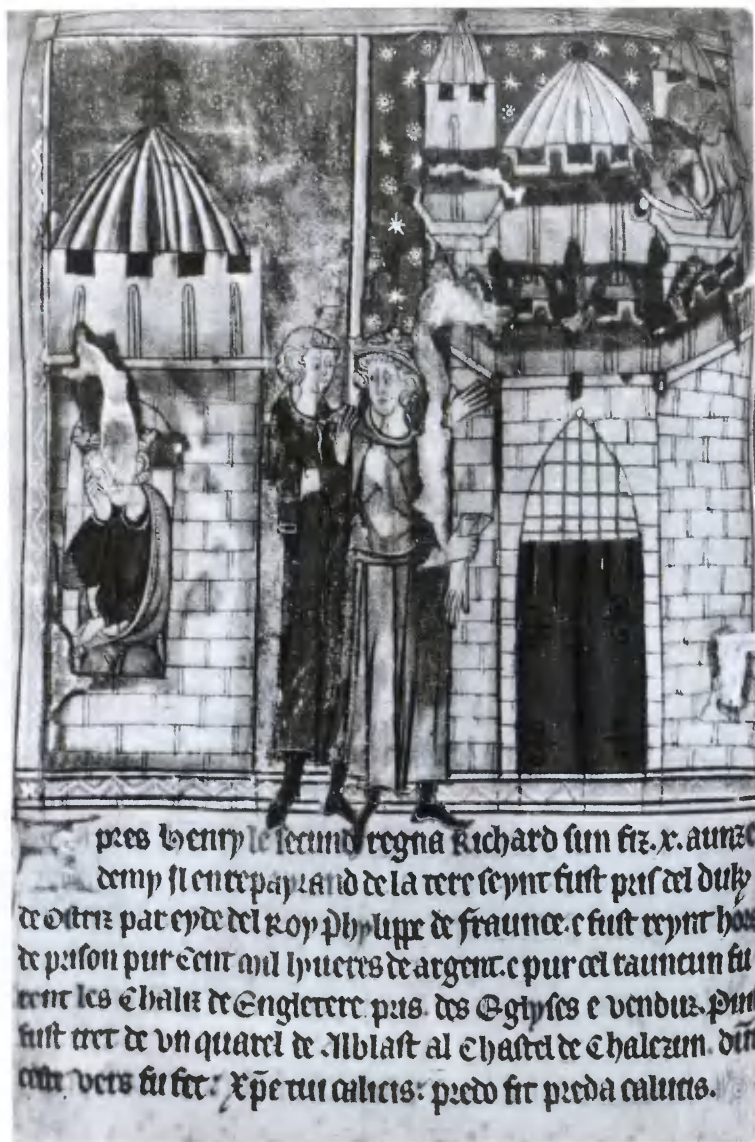 pres Henry le secund regna Richard sun fiz .x. aunz e
demy Il en repayrand de la tere seynt fust pris del duk
de Ostriz par eyde del Roy Phylippe de fraunce. e fust reynt hors
de prison pur Cent mil lyueres de argent. e pur cel rauncun fu
rent les Chaliz de Engletere pris des Eglyses e venduz. Puis
fust tret de vn quarel de Alblast al Chastel de Chalezun. dunt
cest vers fu fet: Xpe tui calicis: predo fit preda calucis.